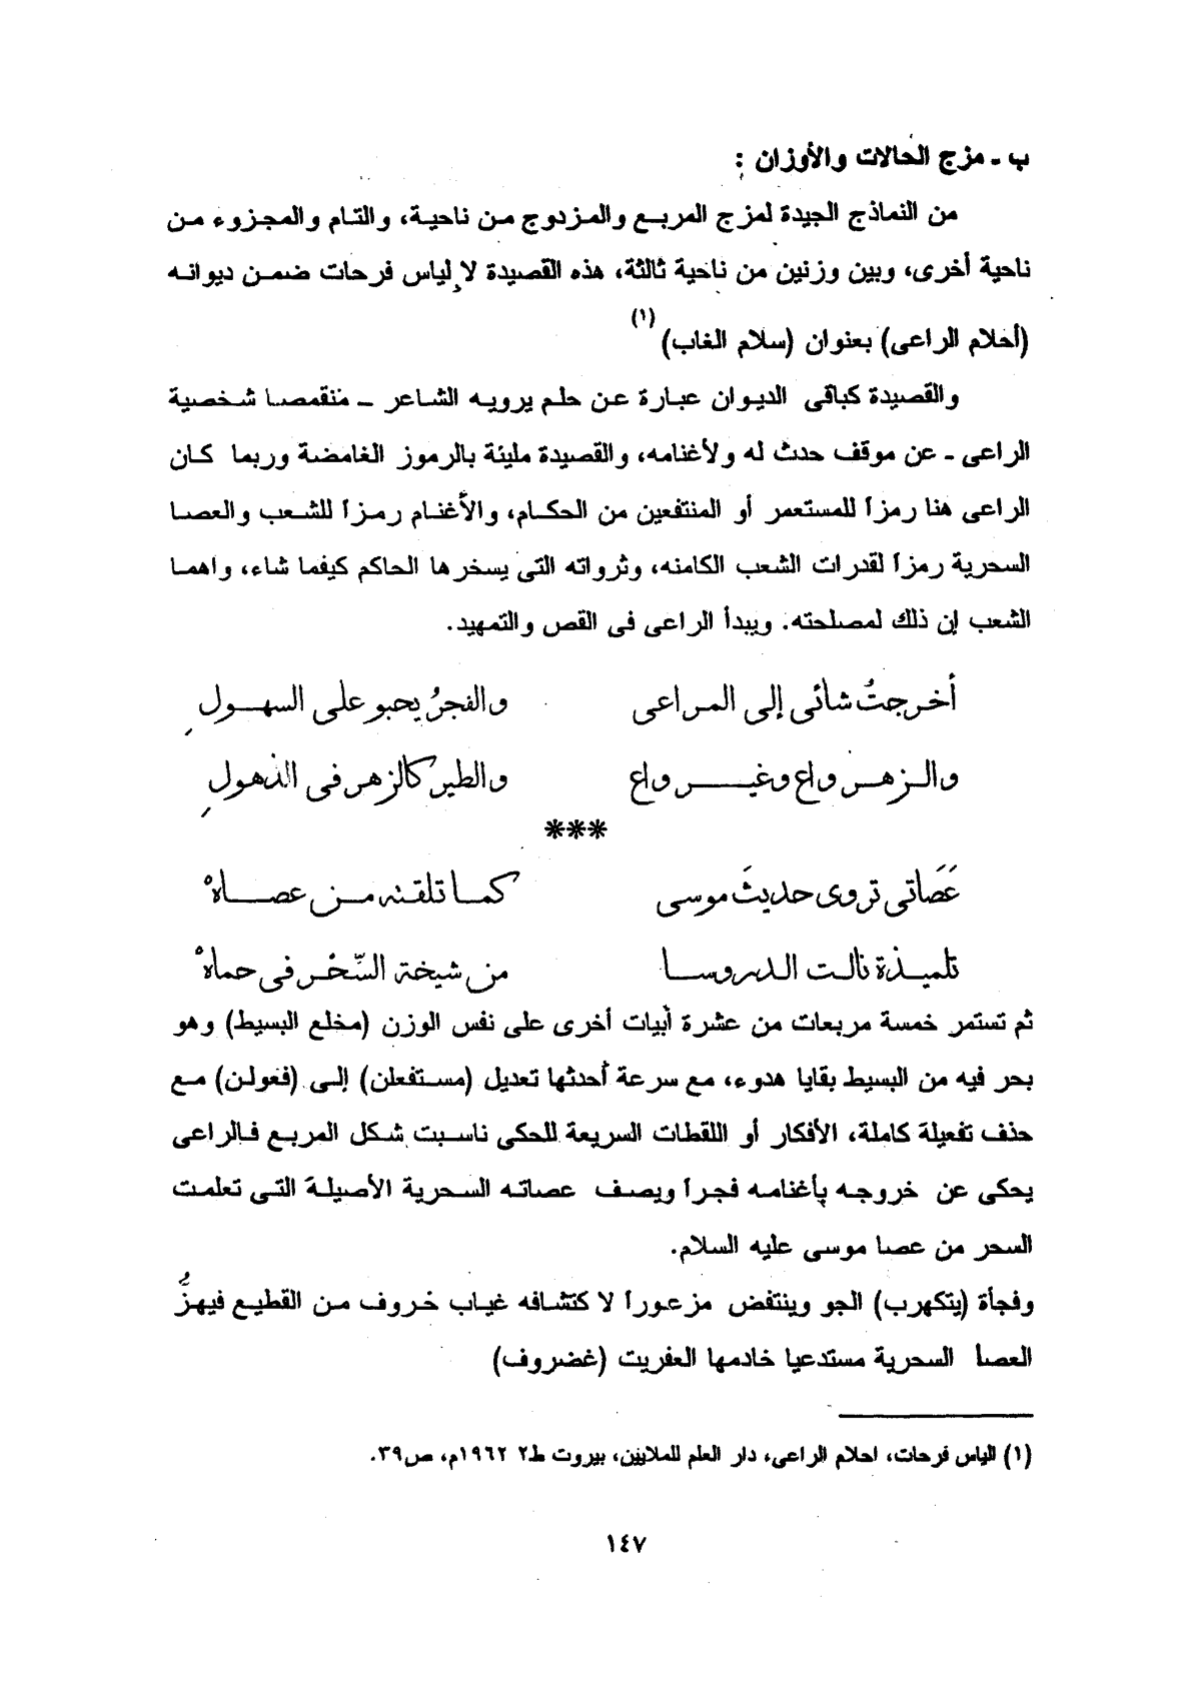 ب - مزج الحالات والأوزان :
من النماذج الجيدة لمزج المربع والمزدوج من ناحية، والتام والمجزوء من
ناحية أخرى، وبين وزنين من ناحية ثالثة، هذه القصيدة لإلياس فرحات ضمن ديوانه
(أحلام الراعى) بعنوان (سلام الغاب) (١)
والقصيدة كباقى الديوان عبارة عن حلم يرويه الشاعر – متقمصا شخصية
الراعى - عن موقف حدث له ولأغنامه، والقصيدة مليئة بالرموز الغامضة وربما كان
الراعى هنا رمزاً للمستعمر أو المنتفعين من الحكام، والأغنام رمزاً للشعب والعصا
السحرية رمزاً لقدرات الشعب الكامنه، وثرواته التى يسخرها الحاكم كيفما شاء، واهما
الشعب إن ذلك لمصلحته. ويبدأ الراعى فى القص والتمهيد.
أخرجتُ شائى إلى المراعى والفجرُ يحبو على السهولِ
والزهر واع وغير واع والطير كالزهر فى الذهولِ
***
عَصَاتى تروى حديثَ موسى كما تلقته من عصاهْ
تلميذة نالت الدروسا من شيخة السِّحْر فى حماهْ
ثم تستمر خمسة مربعات من عشرة أبيات أخرى على نفس الوزن (مخلع البسيط) وهو
بحر فيه من البسيط بقايا هدوء، مع سرعة أحدثها تعديل (مستفعلن) إلى (فعولن) مع
حذف تفعيلة كاملة، الأفكار أو اللقطات السريعة للحكى ناسبت شكل المربع فالراعى
يحكى عن خروجه بأغنامه فجراً ويصف عصاته السحرية الأصيلة التى تعلمت
السحر من عصا موسى عليه السلام.
وفجأة (يتكهرب) الجو وينتفض مزعوراً لاكتشافه غياب خروف من القطيع فيهزُّ
العصا السحرية مستدعيا خادمها العفريت (غضروف)
(١) الياس فرحات، احلام الراعى، دار العلم للملايين، بيروت ط٢ ١٩٦٢م، ص٣٩.
١٤٧